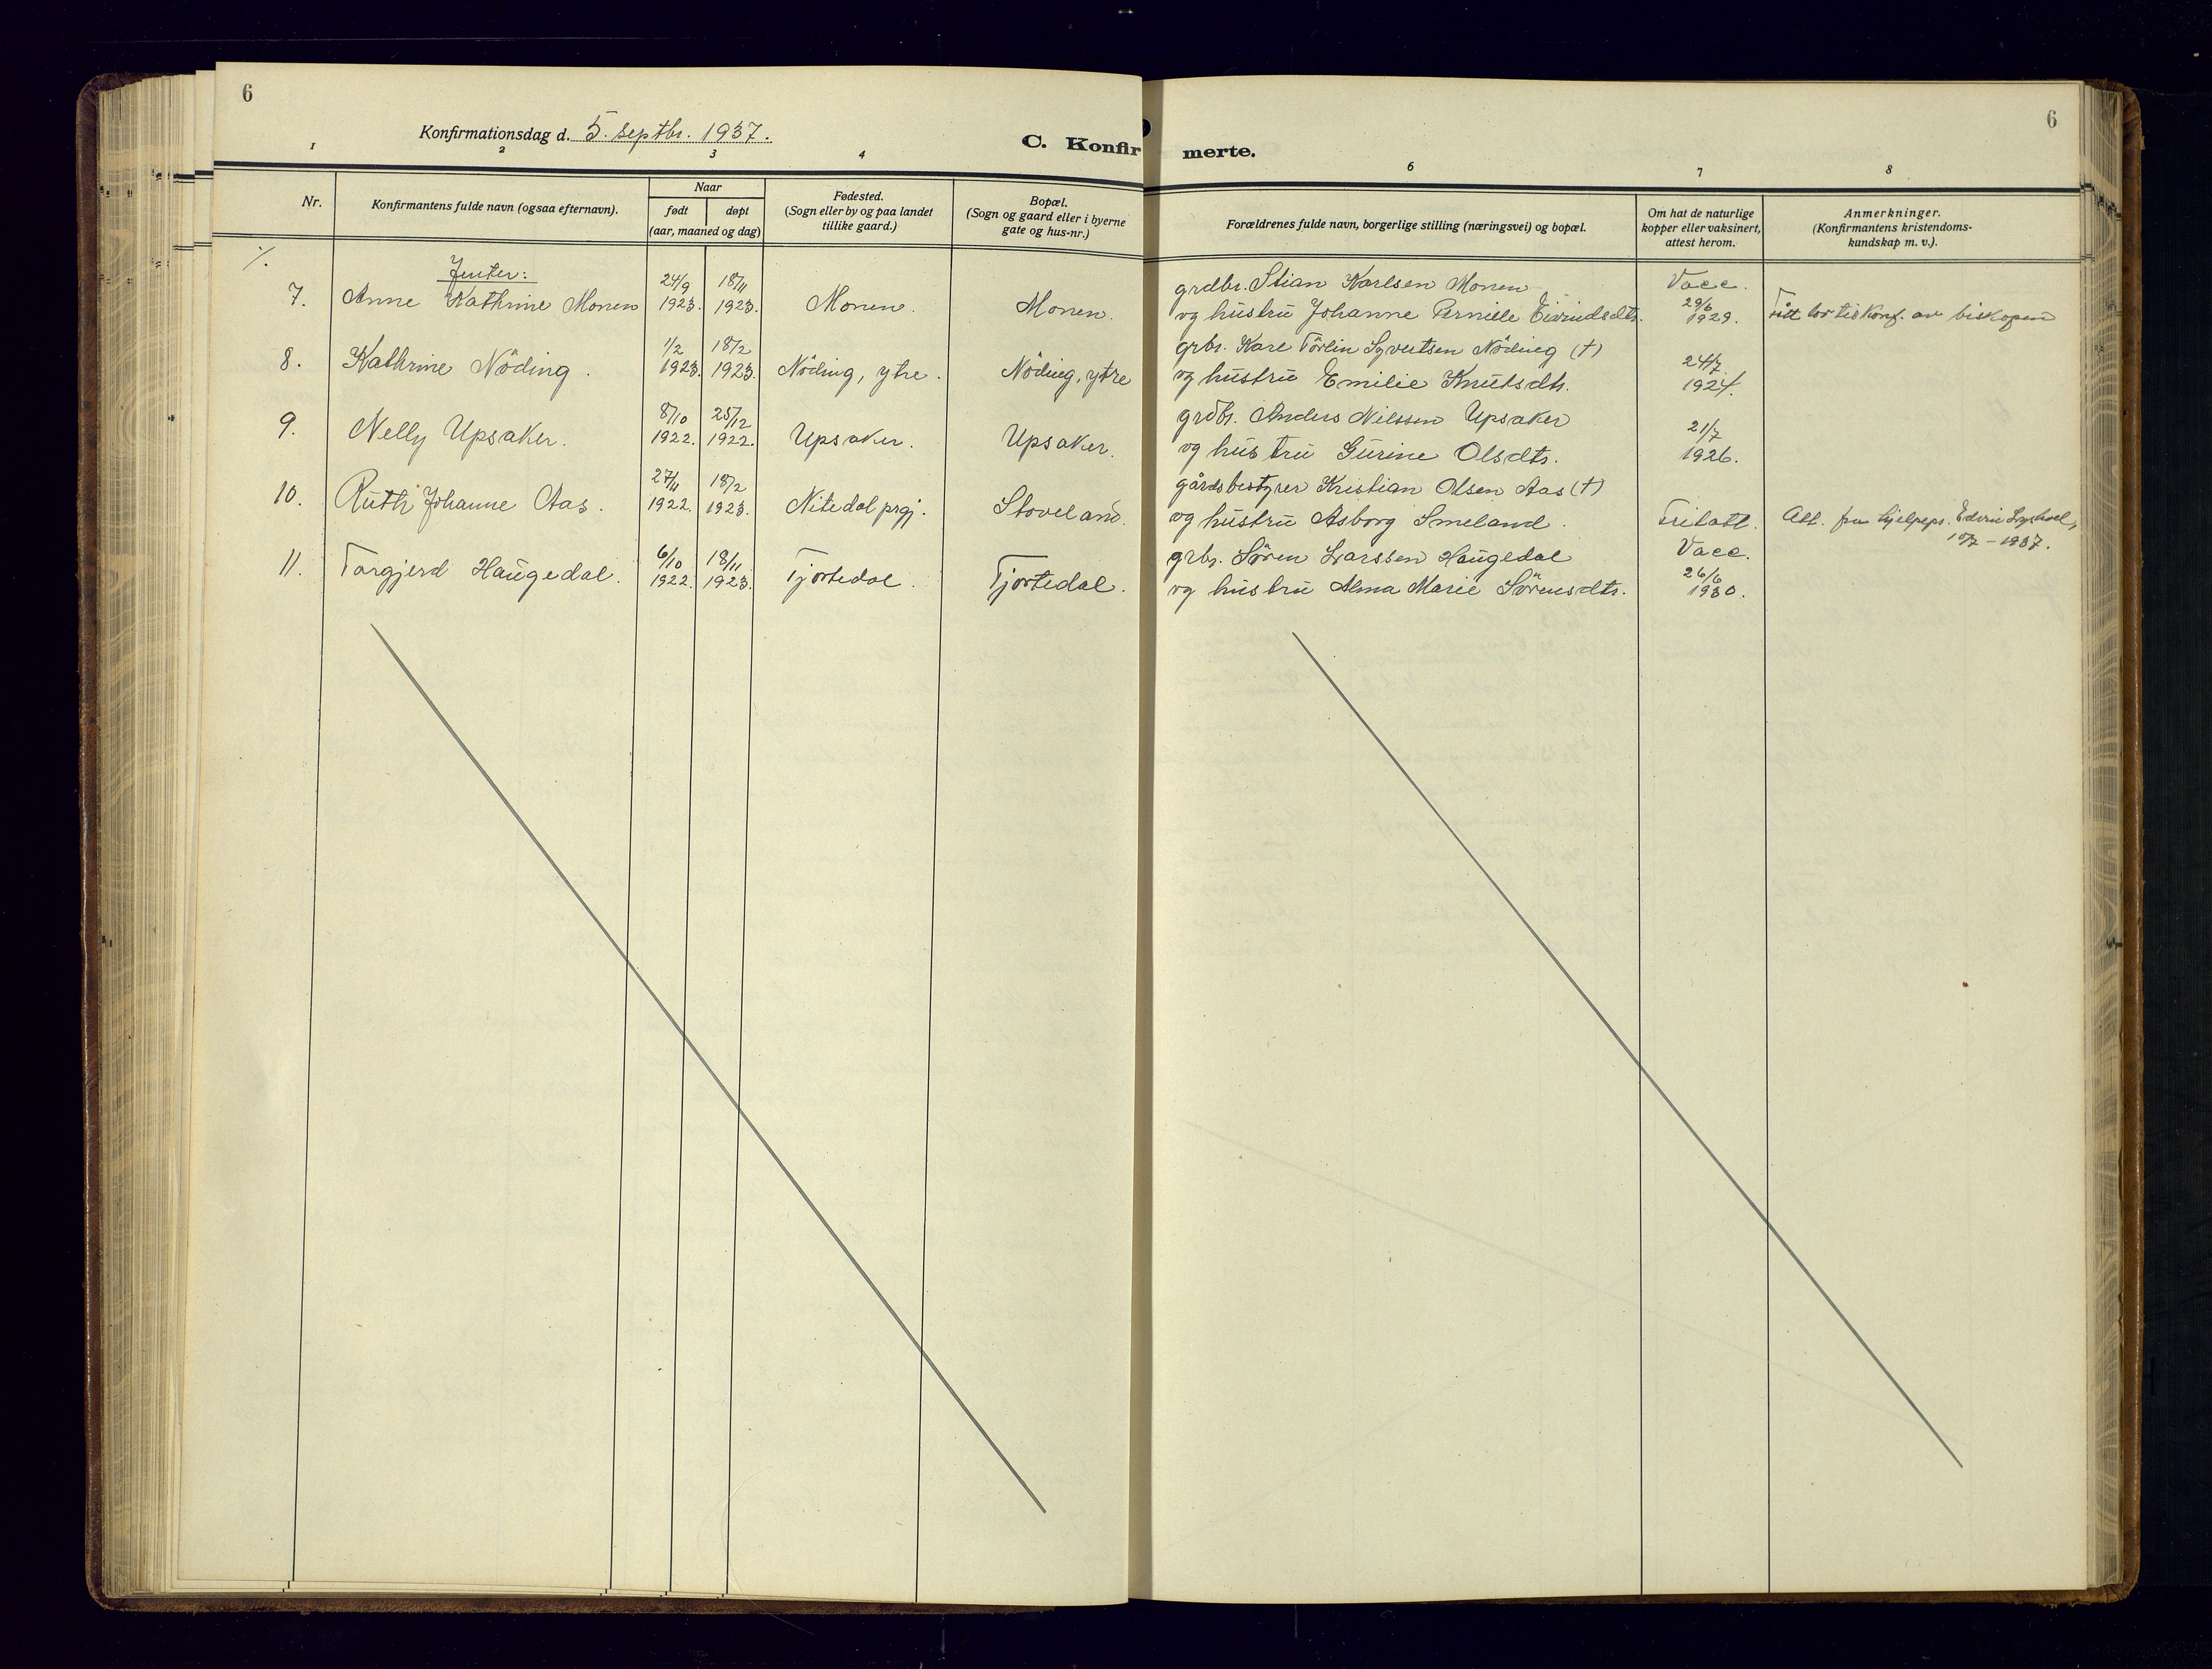 6
6
Konfirmationsdag d. 5. septbr. 1937.
C. Konfirmerte.
1 2 3 4 6 7 8
Nr.
Konfirmantens fulde navn (ogsaa efternavn).
Naar
født døpt
(aar, maaned og dag)
Fødested.
(Sogn eller by og paa landet
tillike gaard.)
Bopæl.
(Sogn og gaard eller i byerne
gate og hus-nr.)
Forældrenes fulde navn, borgerlige stilling (næringsvei) og bopæl.
Om hat de naturlige
kopper eller vaksinert,
attest herom.
Anmerkninger.
(Konfirmantens kristendoms-
kundskap m. v.).
Jenter:
24/9 18/11 grdbr. Stian Karlsen Monen Vacc.
7. Anne Kathrine Monen 1923. 1923. Monen. Monen. og hustru Johanne Pernille Eivindsdtr. 29/6 1929. konf. av biskopen
1/2 18/2 grbr. Karl Törlin Syvertsen Nöding (†) 24/7
8. Kathrine Nöding. 1923. 1923. Nöding, ytre. Nöding, ytre og hustru Emilie Knutsdtr. 1924.
8/10 25/12 grdbr. Anders Nilssen Upsaker 21/7
9. Nelly Upsaker. 1922. 1922. Upsaker. Upsaker. og hustru Gurine Olsdtr. 1926.
27/11 18/2 gårdsbestyrer Kristian Olsen Aas (†)
10. Ruth Johanne Aas. 1922. 1923. Nitedal prgj. Stoveland. og hustru Asborg Smeland. Fritatt. Att. fra hjelpepr. Edvin
1937.
6/10 18/11 grbr. Sören Larssen Haugedal Vacc.
11. Torgjerd Haugedal. 1922. 1923. Tjortedal. Tjortedal. og hustru Alma Marie Sörensdtr. 26/6 1930.